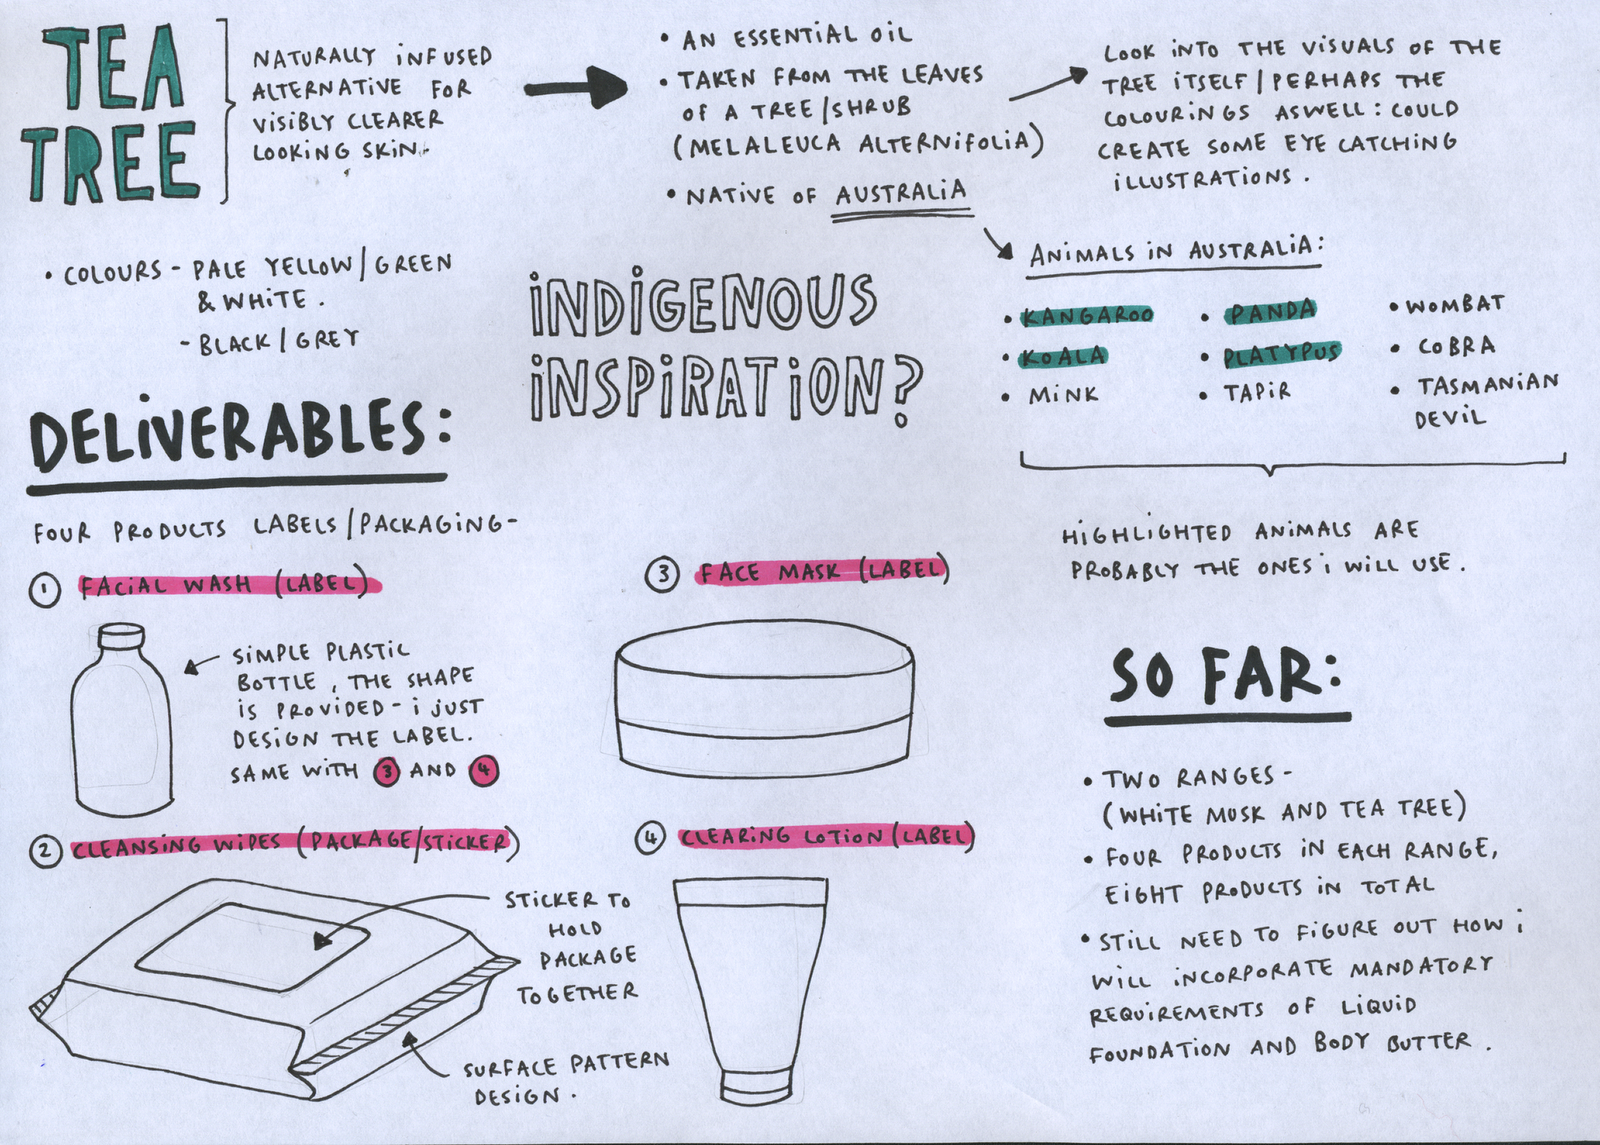 TEA
TREE
NATURALLY iNFUSED
ALTERNATIVE FOR
ViSiBLY CLEARER
LOOKiNG SKiN.
• AN ESSENTiAL OiL
• TAKEN FROM THE LEAVES
OF A TREE/SHRUB
(MELALEUCA ALTERNiFOLiA)
• NATiVE OF AUSTRALiA
LOOK iNTO THE ViSUALS OF THE
TREE iTSELF/PERHAPS THE
COLOURiNGS ASWELL: COULD
CREATE SOME EYE CATCHiNG
iLLUSTRATiONS.
• COLOURS - PALE YELLOW/GREEN
& WHiTE.
- BLACK/GREY
iNDiGENOUS
iNSPiRATiON?
ANiMALS iN AUSTRALiA:
• KANGAROO • PANDA • WOMBAT
• KOALA • PLATYPUS • COBRA
• MiNK • TAPiR • TASMANiAN
DEViL
HiGHLiGHTED ANiMALS ARE
PROBABLY THE ONES i WiLL USE.
DELiVERABLES:
FOUR PRODUCTS LABELS/PACKAGiNG-
1 FACiAL WASH (LABEL)
SiMPLE PLASTiC
BOTTLE, THE SHAPE
iS PROViDED - i JUST
DESiGN THE LABEL.
SAME WiTH 3 AND 4
2 CLEANSiNG WiPES (PACKAGE/STiCKER)
STiCKER TO
HOLD
PACKAGE
TOGETHER
SURFACE PATTERN
DESiGN.
3 FACE MASK (LABEL)
4 CLEARiNG LOTiON (LABEL)
SO FAR:
• TWO RANGES -
(WHiTE MUSK AND TEA TREE)
• FOUR PRODUCTS iN EACH RANGE,
EiGHT PRODUCTS iN TOTAL
• STiLL NEED TO FiGURE OUT HOW i
WiLL iNCORPORATE MANDATORY
REQUiREMENTS OF LiQUiD
FOUNDATiON AND BODY BUTTER.